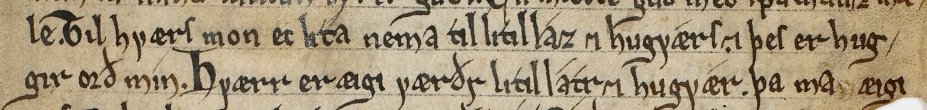 le. Til hꝩærs mon ec lita nema til litillaz ⁊ hugꝩærs ⁊ þes er hug/
gir orð min. Hꝩærr er æigi ꝩærðr litillatr ⁊ hugꝩær. þa ma æigi